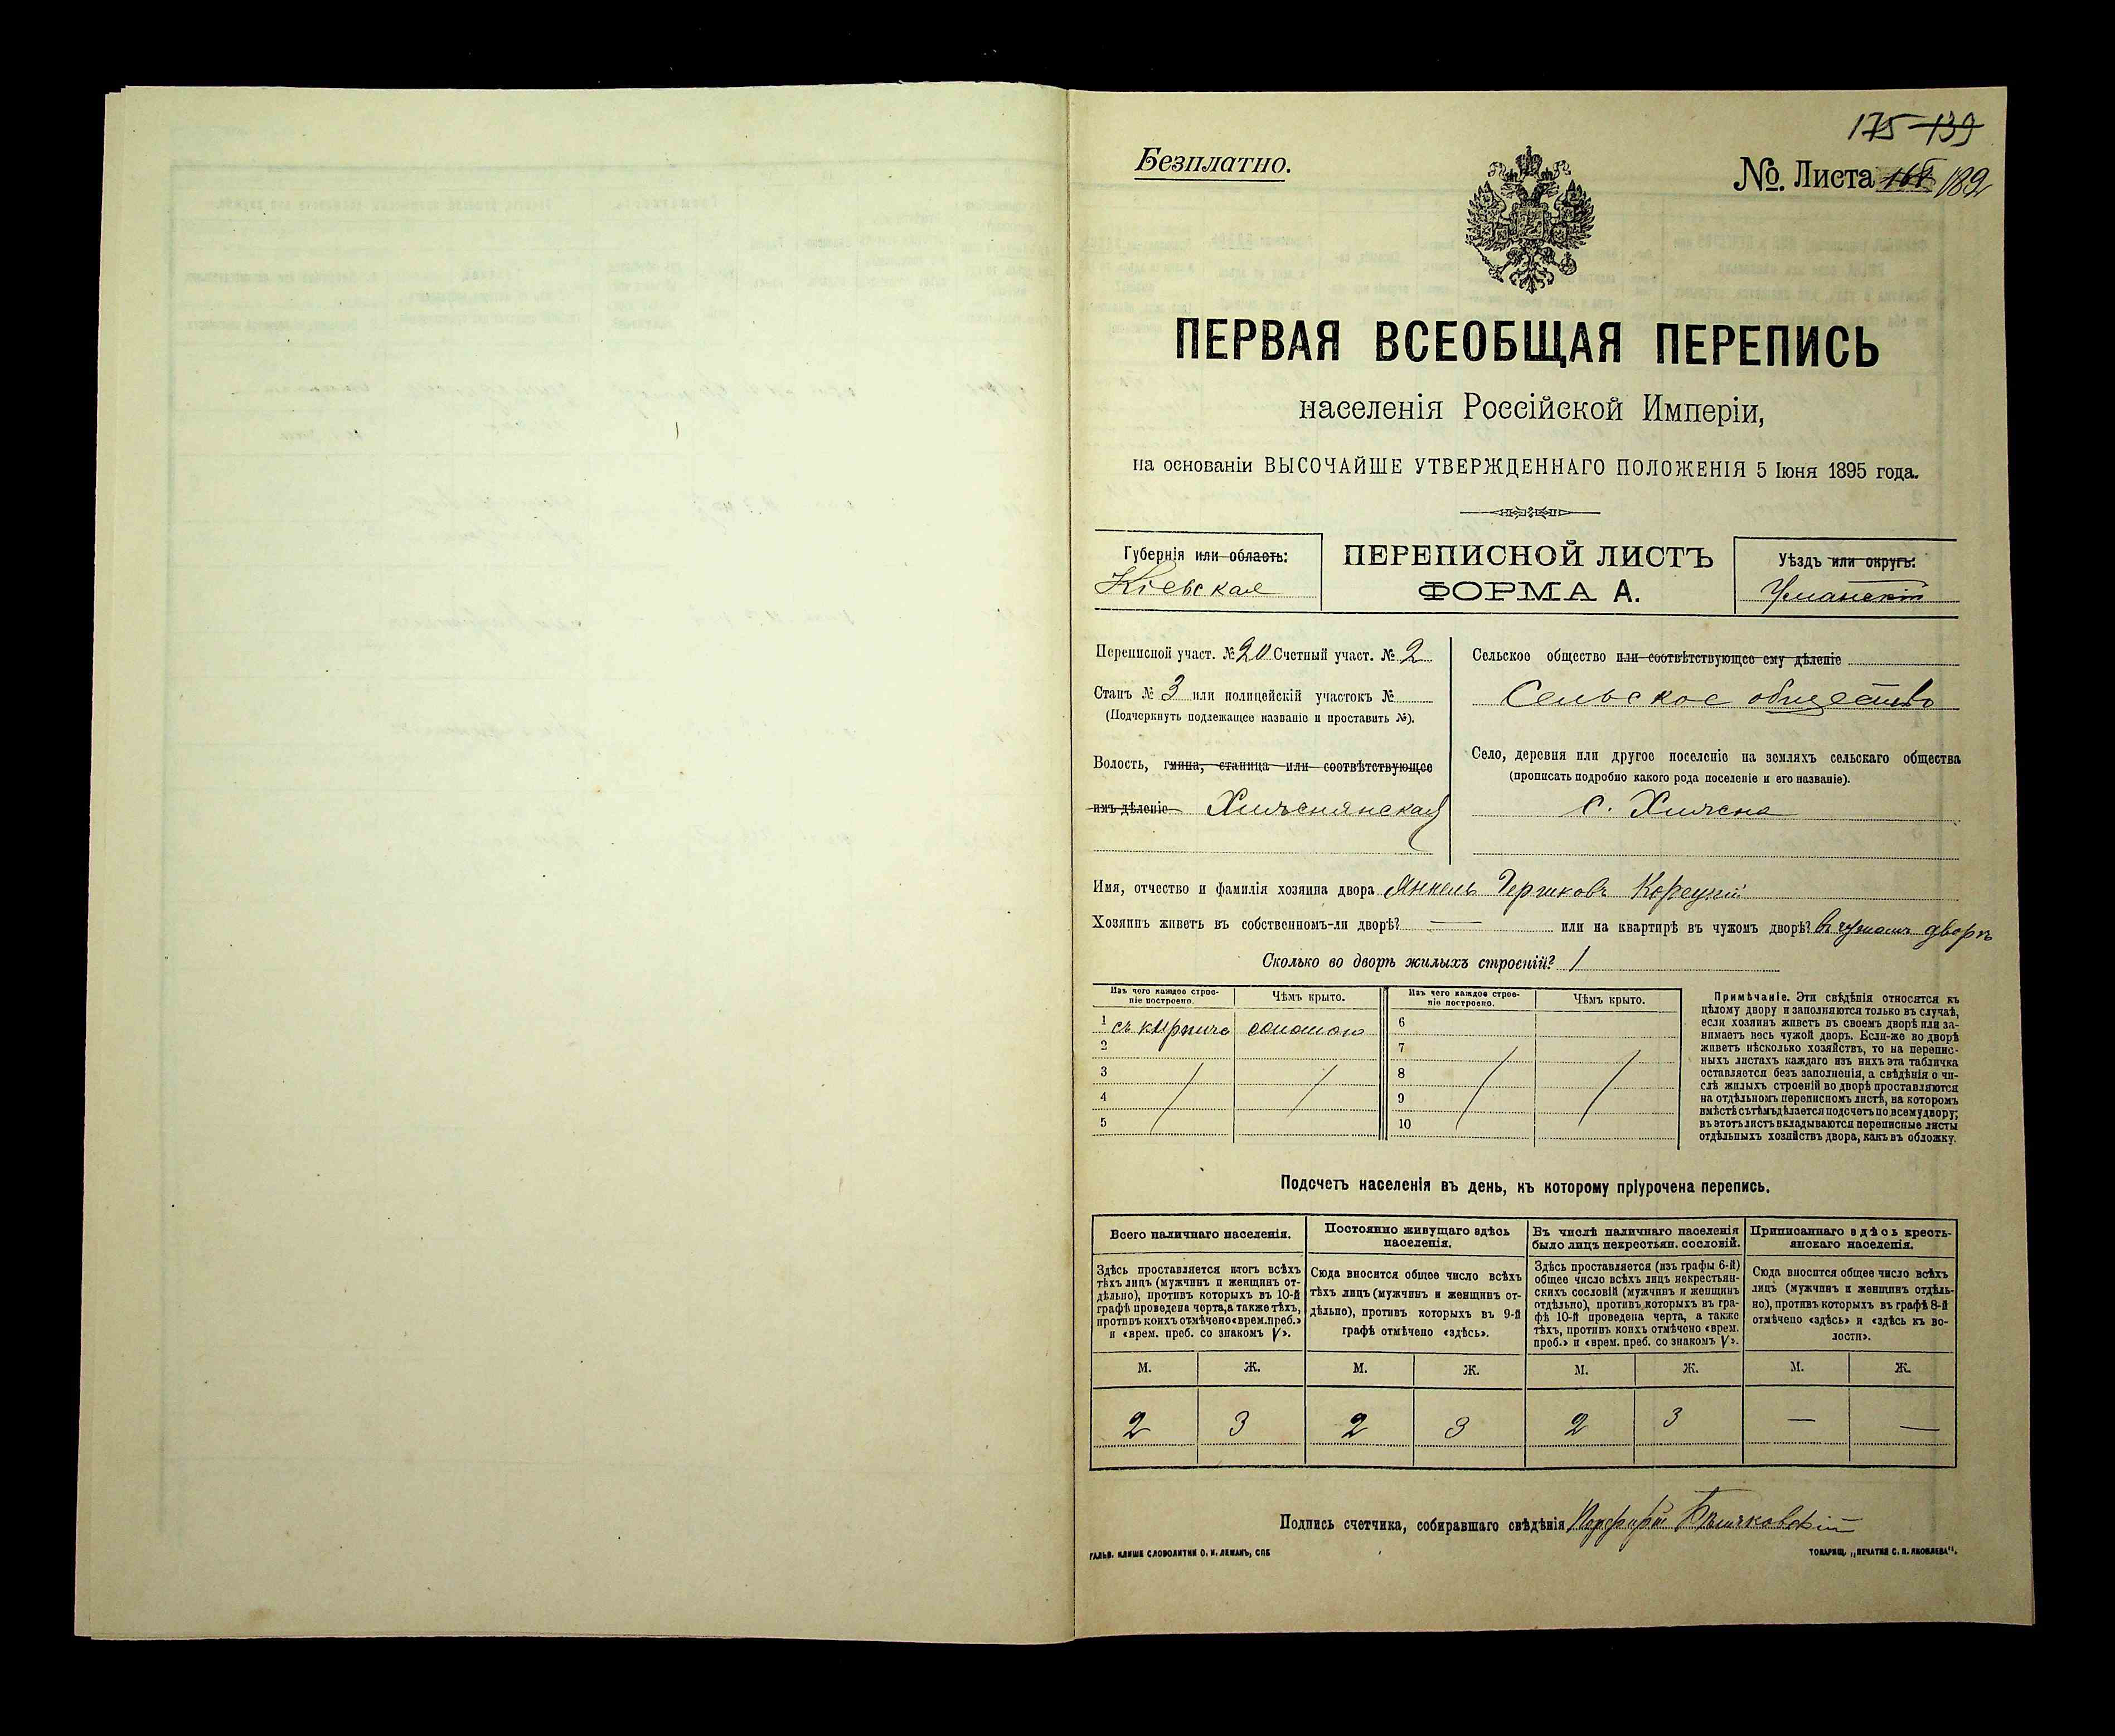 175 139
Безплатно.
№. Листа 189
ПЕРВАЯ ВСЕОБЩАЯ ПЕРЕПИСЬ
населенія Россійской Имперіи,
на основаніи ВЫСОЧАЙШЕ УТВЕРЖДЕННАГО ПОЛОЖЕНІЯ 5 Іюня 1895 года.
Губернія или область:
Кіевская
ПЕРЕПИСНОЙ ЛИСТЪ
ФОРМА А.
Уѣздъ или округъ:
Уманскій
Переписной участ. № 20 Счетный участ. № 2
Станъ № 3 или полицейскій участокъ №
(Подчеркнуть подлежащее названіе и проставить №).
Волость, гмина, станица или соотвѣтствующее
имъ дѣленіе
Сельское общество или соотвѣтствующее ему дѣленіе
Сельское общество
Село, деревня или другое поселеніе на земляхъ сельскаго общества
(прописать подробно какого рода поселеніе и его названіе).
с.
Имя, отчество и фамилія хозяина двора Янкель Гершковъ Корецкій
Хозяинъ живетъ въ собственномъ-ли дворѣ? — или на квартирѣ въ чужомъ дворѣ? въ чужомъ дворѣ
Сколько во дворѣ жилыхъ строеній? 1
Изъ чего каждое строе-
ніе построено.
Чѣмъ крыто.
Изъ чего каждое строе-
ніе построено.
Чѣмъ крыто.
1 съ кирпича соломою 6
2 7
3 8
4 9
5 10
Примѣчаніе. Эти свѣдѣнія относятся къ
цѣлому двору и заполняются только въ случаѣ,
если хозяинъ живетъ въ своемъ дворѣ или за-
нимаетъ весь чужой дворъ. Если-же во дворѣ
живетъ нѣсколько хозяйствъ, то на перепис-
ныхъ листахъ каждаго изъ нихъ эта табличка
оставляется безъ заполненія, а свѣдѣнія о чи-
слѣ жилыхъ строеній во дворѣ проставляются
на отдѣльномъ переписномъ листѣ, на которомъ
вмѣстѣ съ тѣмъ дѣлается подсчетъ по всему двору;
въ этотъ листъ вкладываются переписные листы
отдѣльныхъ хозяйствъ двора, какъ въ обложку.
Подсчетъ населенія въ день, къ которому пріурочена перепись.
Всего наличнаго населенія.
Здѣсь проставляется итогъ всѣхъ
тѣхъ лицъ (мужчинъ и женщинъ от-
дѣльно), противъ которыхъ въ 10-й
графѣ проведена черта, а также тѣхъ,
противъ коихъ отмѣчено «врем. преб.»
и «врем. преб. со знакомъ V».
Постоянно живущаго здѣсь
населенія.
Сюда вносится общее число всѣхъ
тѣхъ лицъ (мужчинъ и женщинъ от-
дѣльно), противъ которыхъ въ 9-й
графѣ отмѣчено «здѣсь».
Въ числѣ наличнаго населенія
было лицъ некрестьян. сословій.
Здѣсь проставляется (изъ графы 6-й)
общее число всѣхъ лицъ некрестьян-
скихъ сословій (мужчинъ и женщинъ
отдѣльно), противъ которыхъ въ гра-
фѣ 10-й проведена черта, а также
тѣхъ, противъ коихъ отмѣчено «врем.
преб.» и «врем. преб. со знакомъ V».
Приписаннаго здѣсь кресть-
янскаго населенія.
Сюда вносится общее число всѣхъ
лицъ (мужчинъ и женщинъ отдѣль-
но), противъ которыхъ въ графѣ 8-й
отмѣчено «здѣсь» и «здѣсь къ во-
лости».
М. Ж. М. Ж. М. Ж. М. Ж.
2 3 2 3 2 3 — —
Подпись счетчика, собиравшаго свѣдѣнія Порфирій
ГАЛЬВ. КЛИШЕ СЛОВОЛИТНИ О. И. ЛЕМАНЪ, СПБ
ТОВАРИЩ. „ПЕЧАТНЯ С. П. ЯКОВЛЕВА“.